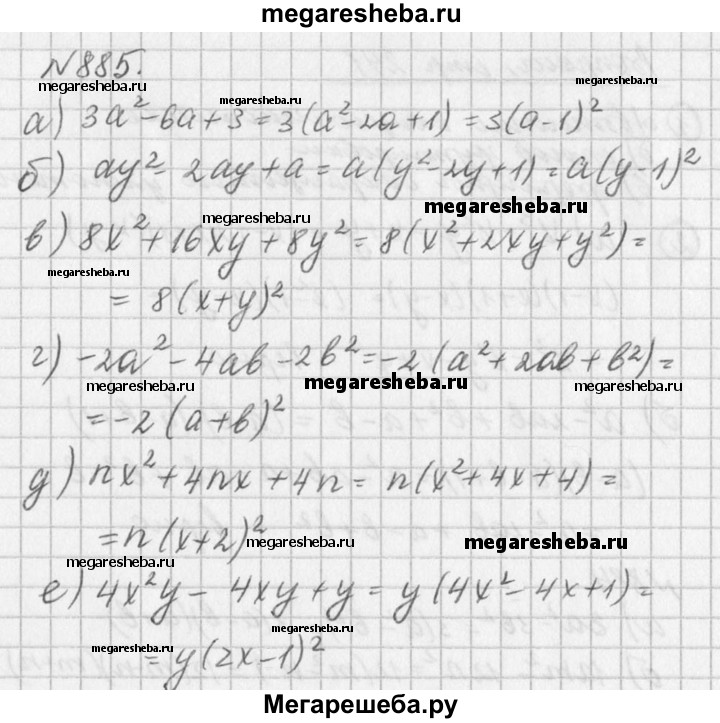 megaresheba.ru
№885.
megaresheba.ru
megaresheba.ru
megaresheba.ru
а) 3a² - 6a + 3 = 3(a² - 2a + 1) = 3(a - 1)²
б) ay² - 2ay + a = a(y² - 2y + 1) = a(y - 1)²
megaresheba.ru
megaresheba.ru
в) 8x² + 16xy + 8y² = 8(x² + 2xy + y²) =
megaresheba.ru
= 8(x + y)²
г) -2a² - 4ab - 2b² = -2(a² + 2ab + b²) =
megaresheba.ru
megaresheba.ru
megaresheba.ru
= -2(a + b)²
д) nx² + 4nx + 4n = n(x² + 4x + 4) =
= n(x + 2)²
megaresheba.ru
megaresheba.ru
megaresheba.ru
е) 4x²y - 4xy + y = y(4x² - 4x + 1) =
megaresheba.ru
megaresheba.ru
= y(2x - 1)²
Мегарешеба.ру